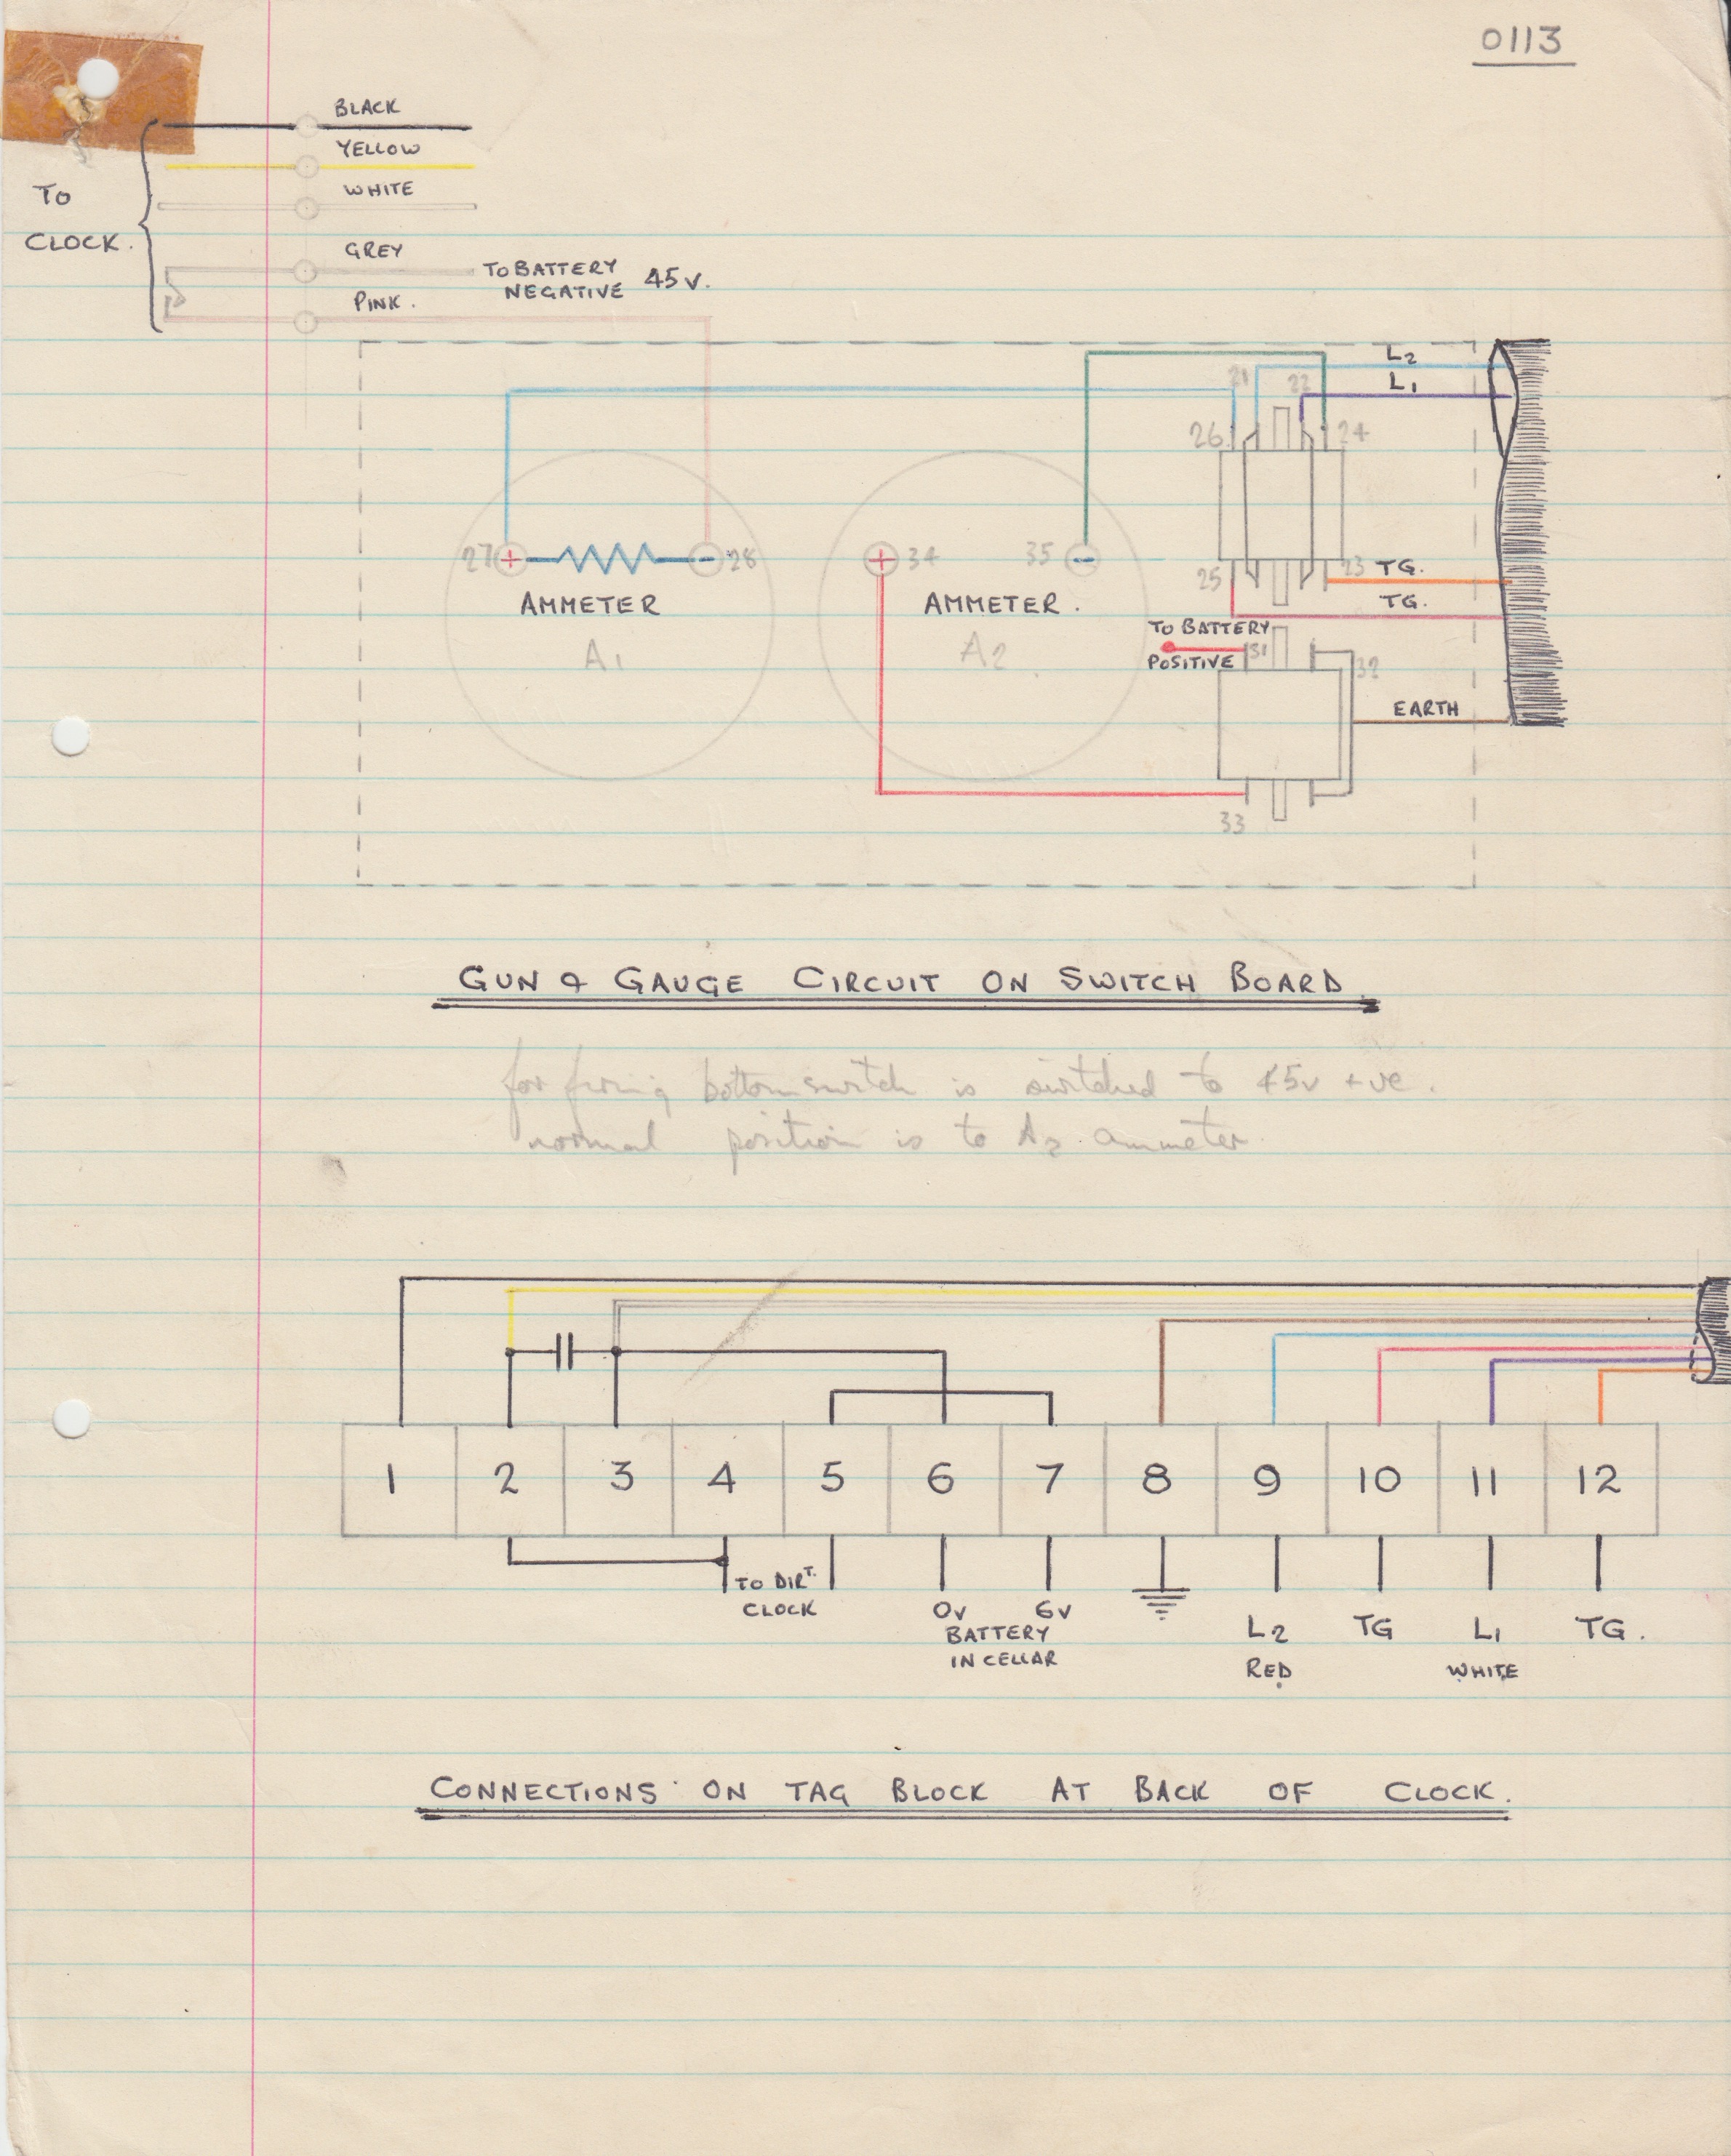 0113
BLACK
YELLOW
TO
CLOCK.
WHITE
GREY
TO BATTERY
NEGATIVE 45V.
PINK.
L2
21
22
L1
26
24
27 + - 28
+ 34
35 -
25
23 TG.
TG.
AMMETER
A1
AMMETER.
A2
TO BATTERY
POSITIVE
31
32
EARTH
33
GUN & GAUGE CIRCUIT ON SWITCH BOARD.
for firing bottom switch is switched to 45v +ve.
normal position is to A2 ammeter.
1 2 3 4 5 6 7 8 9 10 11 12
TO DIRT.
CLOCK
0V 6V
BATTERY
IN CELLAR
L2 TG L1 TG.
RED WHITE
CONNECTIONS ON TAG BLOCK AT BACK OF CLOCK.